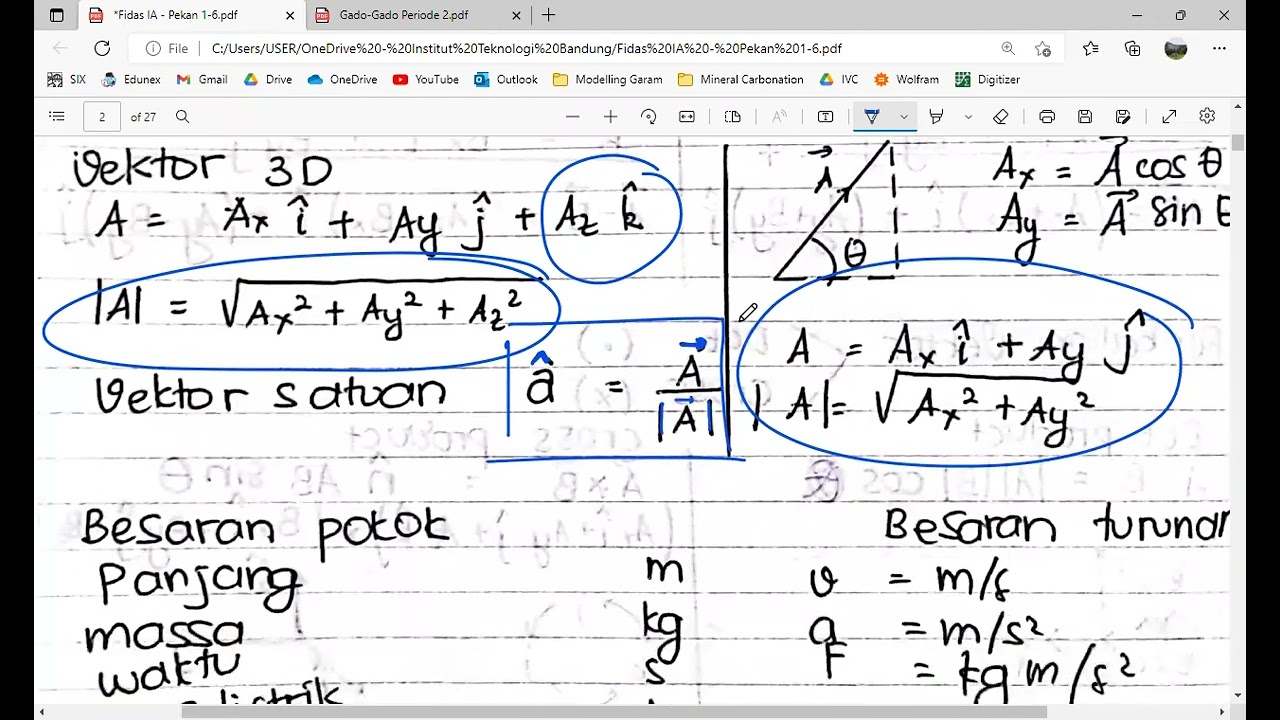 *Fidas IA - Pekan 1-6.pdf
Gado-Gado Periode 2.pdf
File
C:/Users/USER/OneDrive%20-%20Institut%20Teknologi%20Bandung/Fidas%20IA%20-%20Pekan%201-6.pdf
SIX
Edunex
Gmail
Drive
OneDrive
YouTube
Outlook
Modelling Garam
Mineral Carbonation
IVC
Wolfram
Digitizer
2 of 27
Vektor 3D
A = Ax î + Ay ĵ + Az k̂
|A| = √Ax² + Ay² + Az²
Vektor satuan
â = A⃗ / |A⃗|
A⃗
θ
Ax = A⃗ cos θ
Ay = A⃗ sin θ
A = Ax î + Ay ĵ
|A| = √Ax² + Ay²
Besaran pokok
Panjang m
massa kg
waktu s
listrik
Besaran turunan
v = m/s
a = m/s²
F = kg m/s²